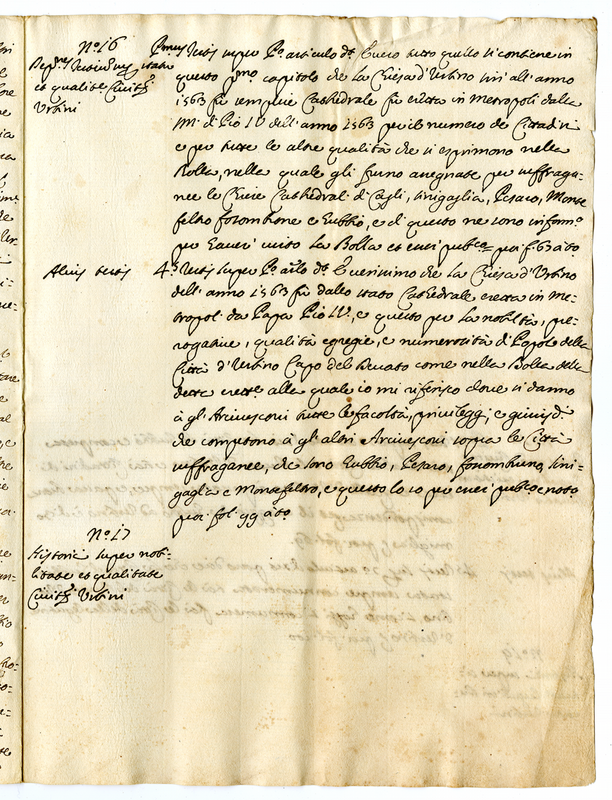 N.° 16
super statu
et qualitate Civit.s
Urbini
P.mus testis super p.° articulo d.t È vero tutto quello si contiene in
questo p.mo capitolo che la Chiesa d'Urbino sin' all' anno
1563 fù sempre Cathedrale fù eretta in Metropoli dalla
M. di Pio IV dell' anno 1563 per il numero de Cittadini
e per tutte le altre qualità che si esprimono nella
Bolla, nella quale gli furno assegnate per suffraga-
nee le Chiese Cathedrali di Cagli, Sinigaglia, Pesaro, Monte
feltro fosombrone e Eubbio, e di questo ne sono inform.o
per haver' visto la Bolla et esser pub.co poi f. 63 a to
Alius testis
4.s testis super p.° d.t È verissimo che la Chiesa d'Urbino
dell' anno 1563 fù dallo stato Cathedrale eretta in Me-
tropoli da Papa Pio IV., e questo per la nobiltà, pre-
rogative, qualità egregie, e numerosità di Popolo della
Città d'Urbino Capo del Ducato come nella Bolla della
detta erett.e alla quale io mi riferisco dove si danno
à gli Arcivescovi tutte le facoltà, privileggi, e giurisd.i
che competono à gli altri Arcivescovi sopra le Città
suffraganee, che sono Eubbio, Pesaro, fosombruno, Sini-
gaglia e Montefeltro, e questo lo so per esser pub.co e noto
poi fol. 99 a to
N.° 17
Historic super nob-
litate et qualitate
Civit.s Urbini